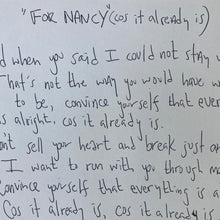 "FOR NANCY" (cos it already is)
d when you said I could not stay
That's not the way you would have w
to be, convince yourself that ever
s alright, cos it already is.
n't sell your heart and break just a
I want to run with you through m
Convince yourself that everything is a
Cos it already is, cos it already is